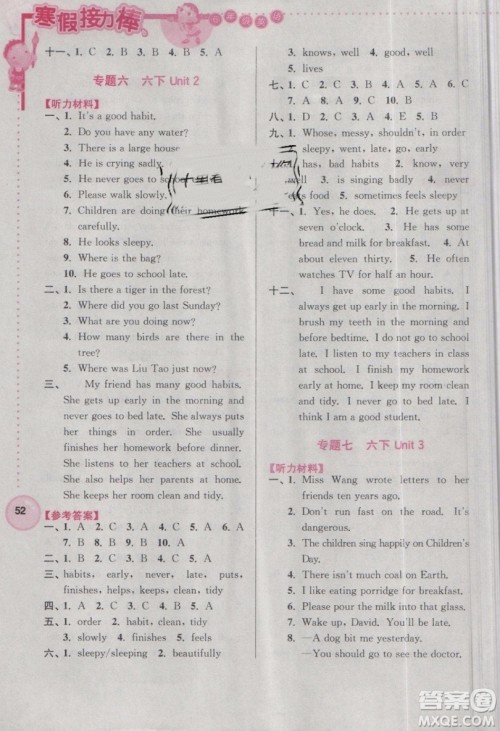 寒假接力棒
十一、1. C 2. A 3. B 4. B 5. A
专题六 六下 Unit 2
【听力材料】
一、1. It's a good habit.
2. Do you have any water?
3. There is a large house
4. He is crying sadly.
5. He never goes to school
6. Please walk slowly.
7. Children are doing their homework
carefully.
8. He looks sleepy.
9. Where is the bag?
10. He goes to school late.
二、1. Is there a tiger in the forest?
2. Where did you go last Sunday?
3. What are you doing now?
4. How many birds are there in the
tree?
5. Where was Liu Tao just now?
三、 My friend has many good habits.
She gets up early in the morning.
She never goes to bed late. She always
puts her things in order. She usually
finishes her homework before dinner.
She listens to her teachers at school.
She also helps her parents at home.
She keeps her room clean and tidy.
【参考答案】
一、1. A 2. C 3. A 4. C 5. A 6. A
7. B 8. B 9. B 10. A
二、1. A 2. C 3. B 4. C 5. A
三、habits, early, never, late, puts,
finishes, helps, keeps, clean, tidy
四、1. A 2. B 3. B 4. A 5. A
五、1. order 2. tidy, habit, clean
3. slowly 4. finishes 5. feels
六、1. sleepy/sleeping 2. beautifully
52
3. good 4. dancing/to dance 5. well
6. living
七、1. C 2. A 3. C 4. A 5. B 6. C
7. A 8. C 9. A 10. B
八、1. D 2. A 3. E 4. C 5. B
九、1. Whose, messy, shouldn't, order
sleepy, went, late, go, early
has, bad habits 2. shouldn't,
3. is singing badly 4. never
food 5. sometimes feels sleepy
十一、1. Yes, he does. 2. He gets up at
seven o'clock. 3. He usually has some
bread and milk for breakfast. 4. He is
late for school. 5. No, he doesn't. He
watches TV for half an hour.
十二、 I have some good habits. I
always get up early in the morning. I
brush my teeth in the morning and
before bedtime. I do not go to school
late. I listen to my teachers in class
at school. I finish my homework early
and I keep my room clean and tidy. I
think I am a good student.
专题七 六下 Unit 3
【听力材料】
一、1. Miss Wang wrote letters to her
friends ten years ago.
2. Don't run fast on the road. It's
dangerous.
3. The children sing happily on Children's
Day.
4. There isn't much coal on Earth.
5. I like eating porridge for breakfast.
6. Please pour the milk into that glass.
7. What day was yesterday, David?
8. —A dog bit me yesterday.
—You should go to see the doctor.
答案圈
MXQE.COM